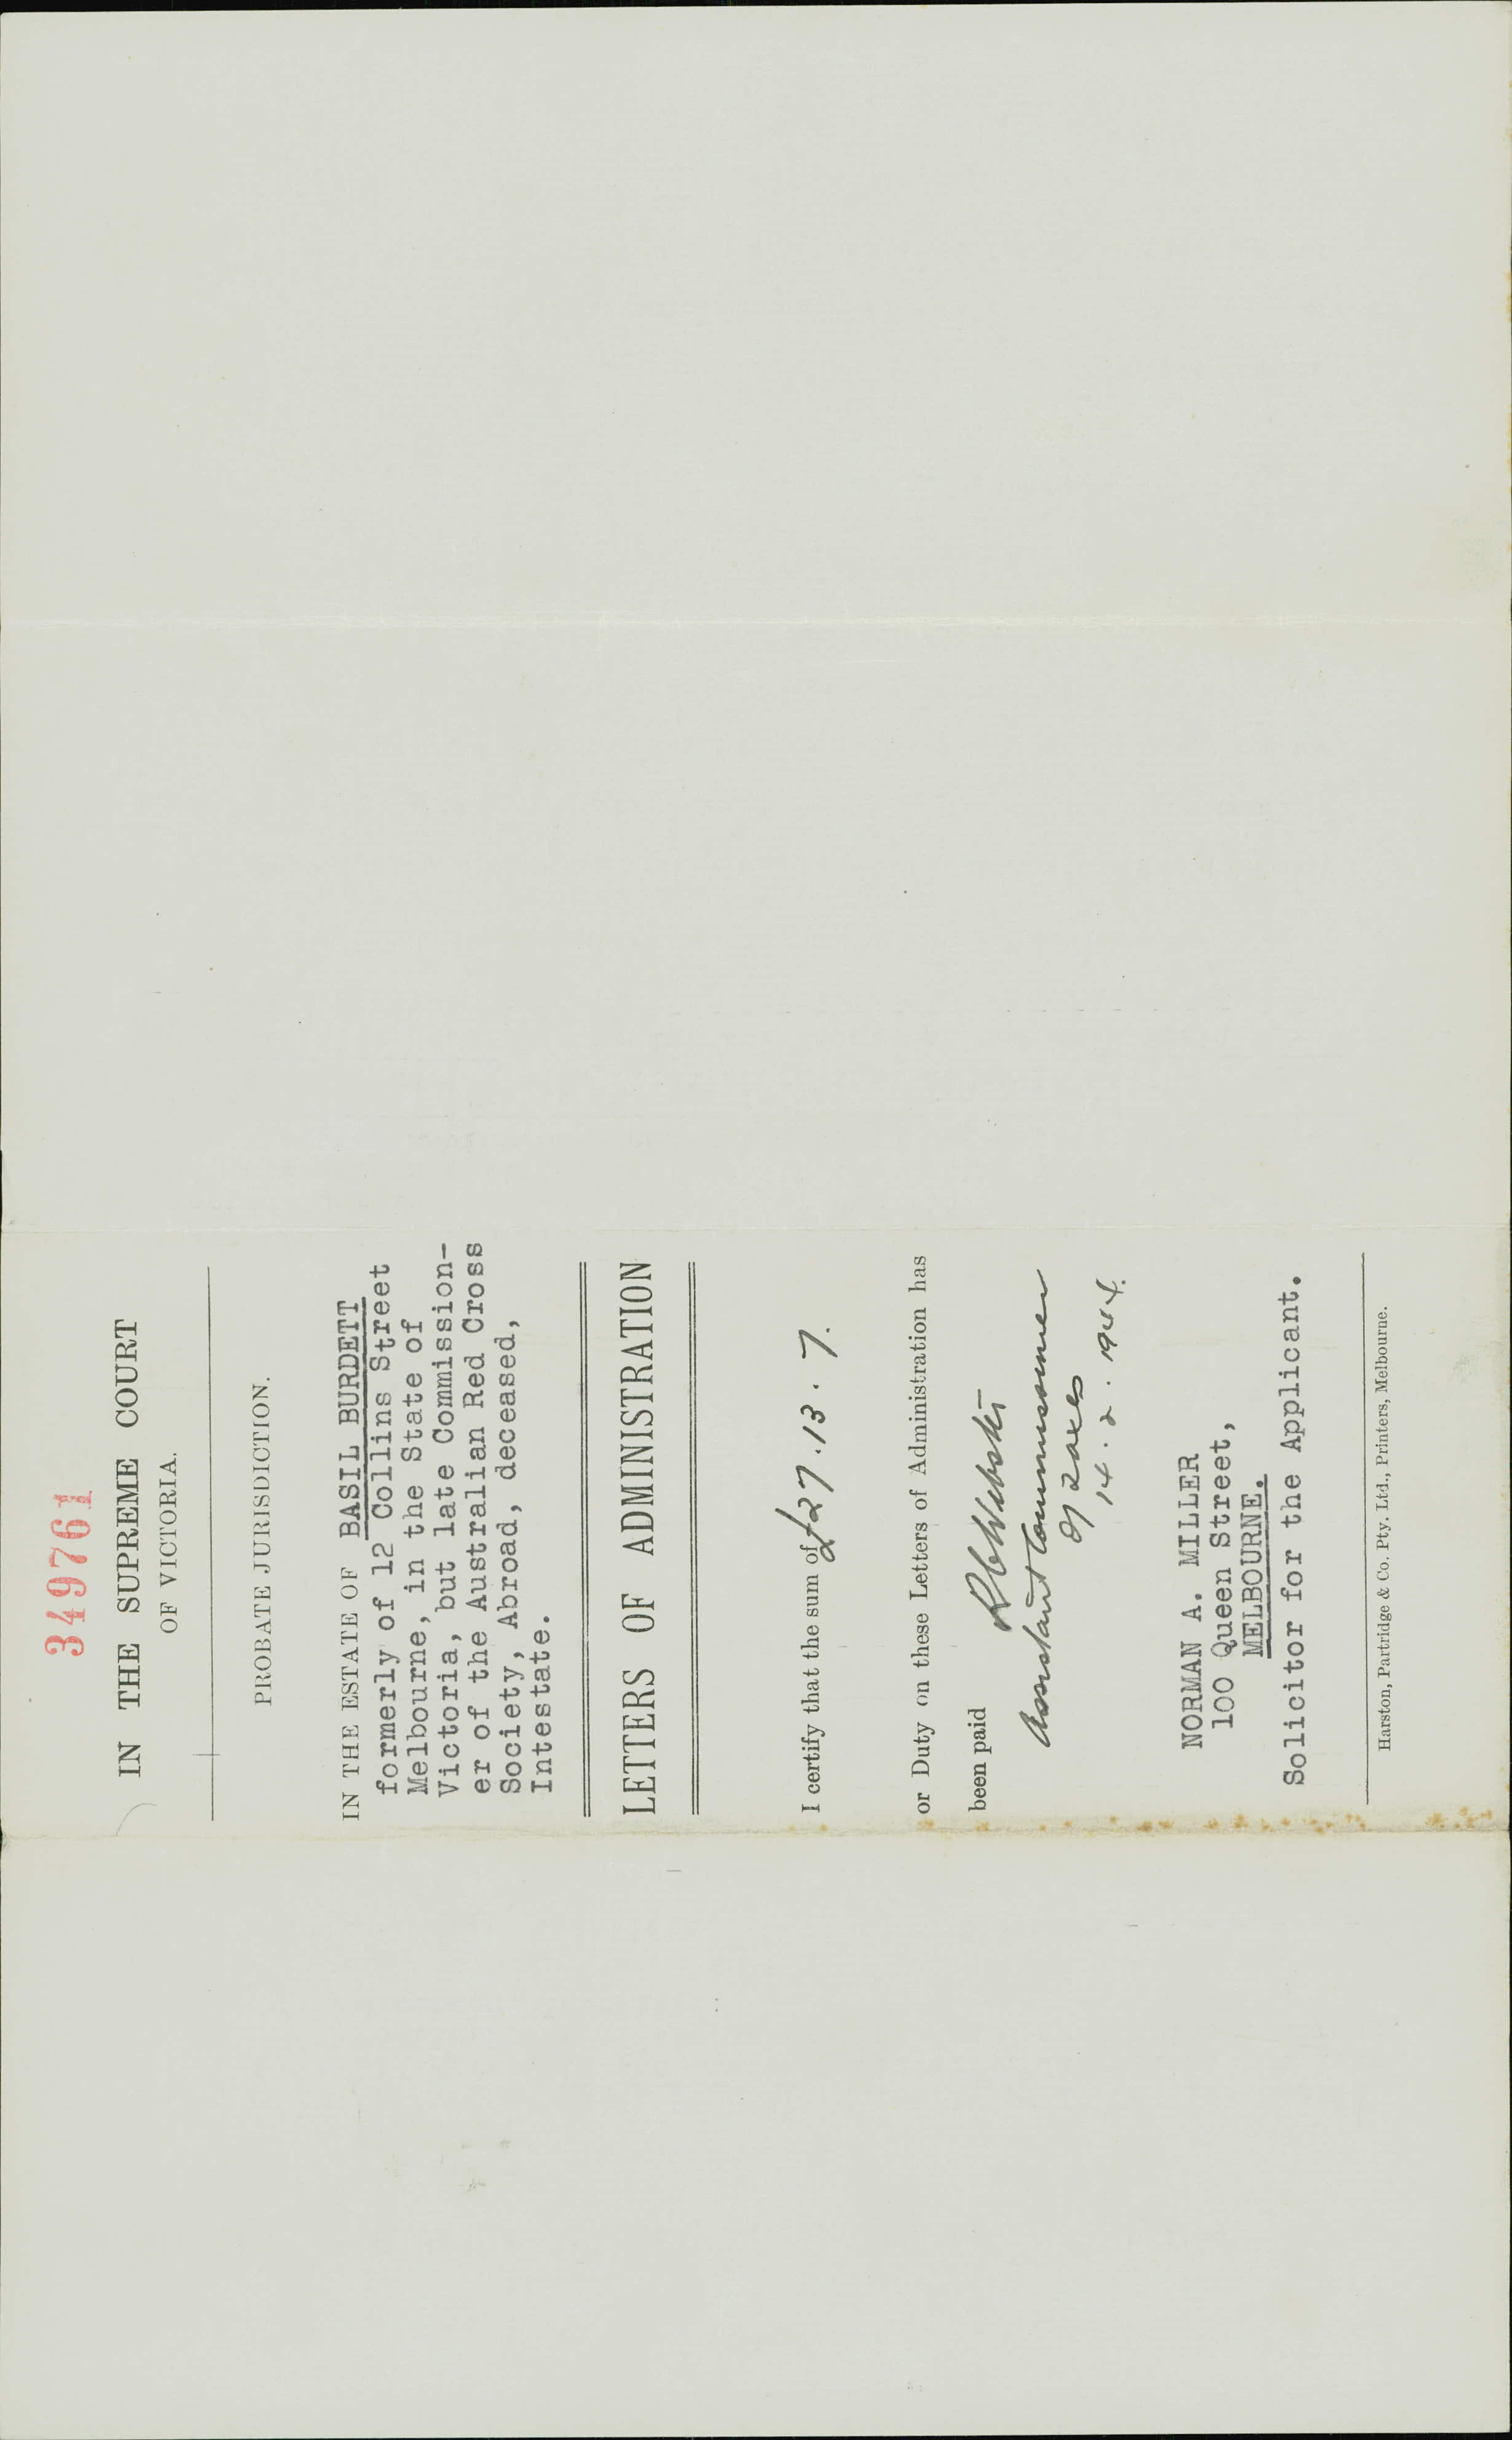 349761
IN THE SUPREME COURT
OF VICTORIA.
PROBATE JURISDICTION.
IN THE ESTATE OF BASIL BURDETT
formerly of 12 Collins Street
Melbourne, in the State of
Victoria, but late Commission-
er of the Australian Red Cross
Society, Abroad, deceased,
Intestate.
LETTERS OF ADMINISTRATION
I certify that the sum of £27.13.7.
or Duty on these Letters of Administration has
been paid
Webster
Assistant Commissioner
of Taxes
14.2.1944.
NORMAN A. MILLER
100 Queen Street,
MELBOURNE.
Solicitor for the Applicant.
Harston, Partridge & Co. Pty. Ltd., Printers, Melbourne.